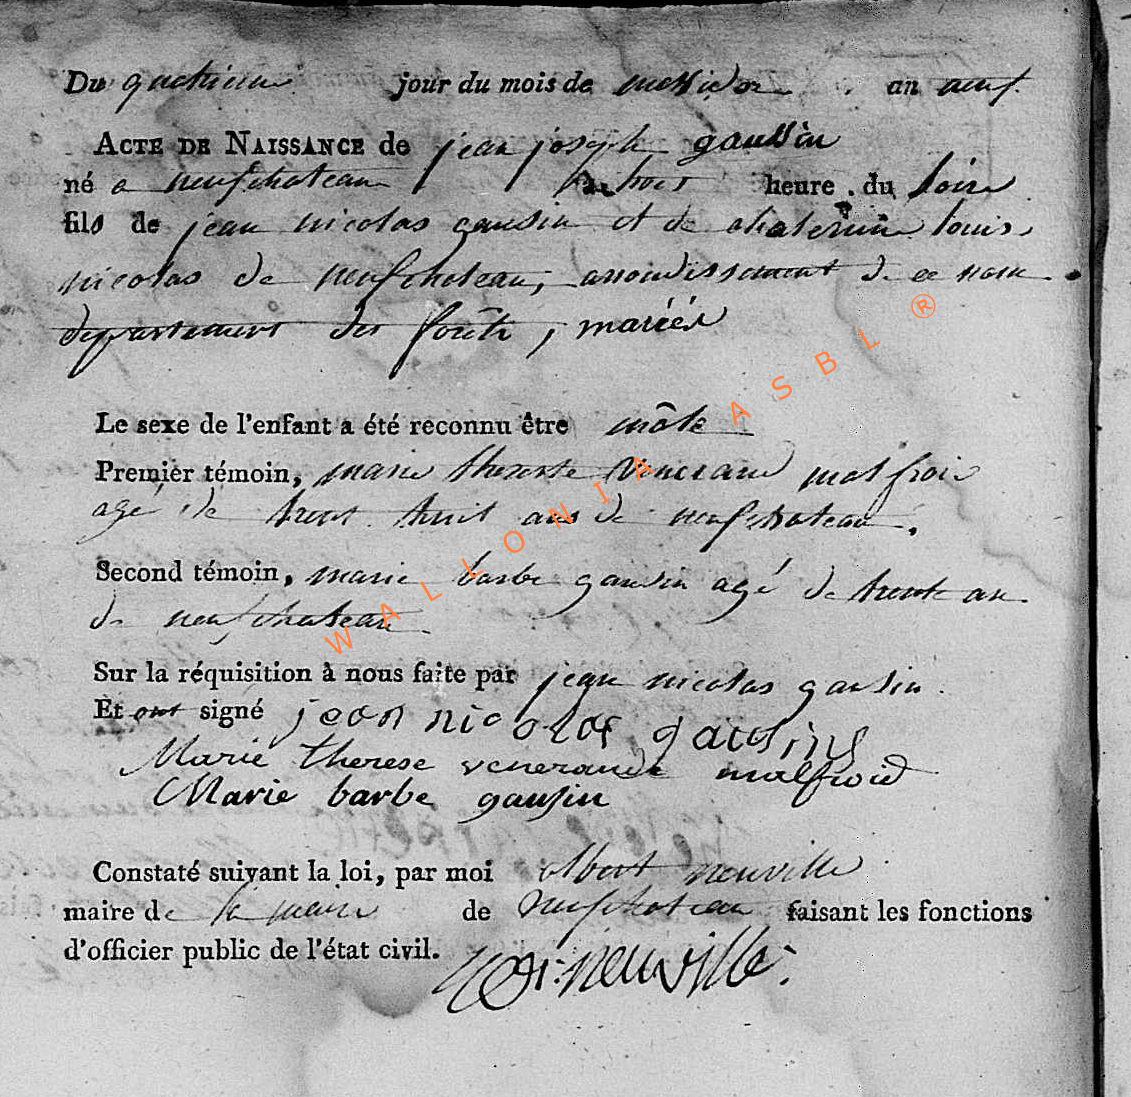 Du quatrieme jour du mois de messidor an neuf.
ACTE DE NAISSANCE de jean joseph gaussin
né a neufchateau a trois heure du soire
fils de jean nicolas gausin et de chaterine louis
nicolas de neufchateau, arrondissement de ce nom
departement des forêts, mariés
Le sexe de l'enfant a été reconnu être mâle
Premier témoin, marie therese venerand malfroid
agé de trent huit ans de neufchateau.
Second témoin, marie barbe gausin agé de trente an
de neufchateau
Sur la réquisition à nous faite par jean nicolas gausin
Et ont signé jean nicolas gausin
Marie therese venerande malfroid
Marie barbe gausin
Constaté suivant la loi, par moi albert neuville
maire de la mairie de neufchateau faisant les fonctions
d'officier public de l'état civil.
neuville
WALLONIA ASBL ®